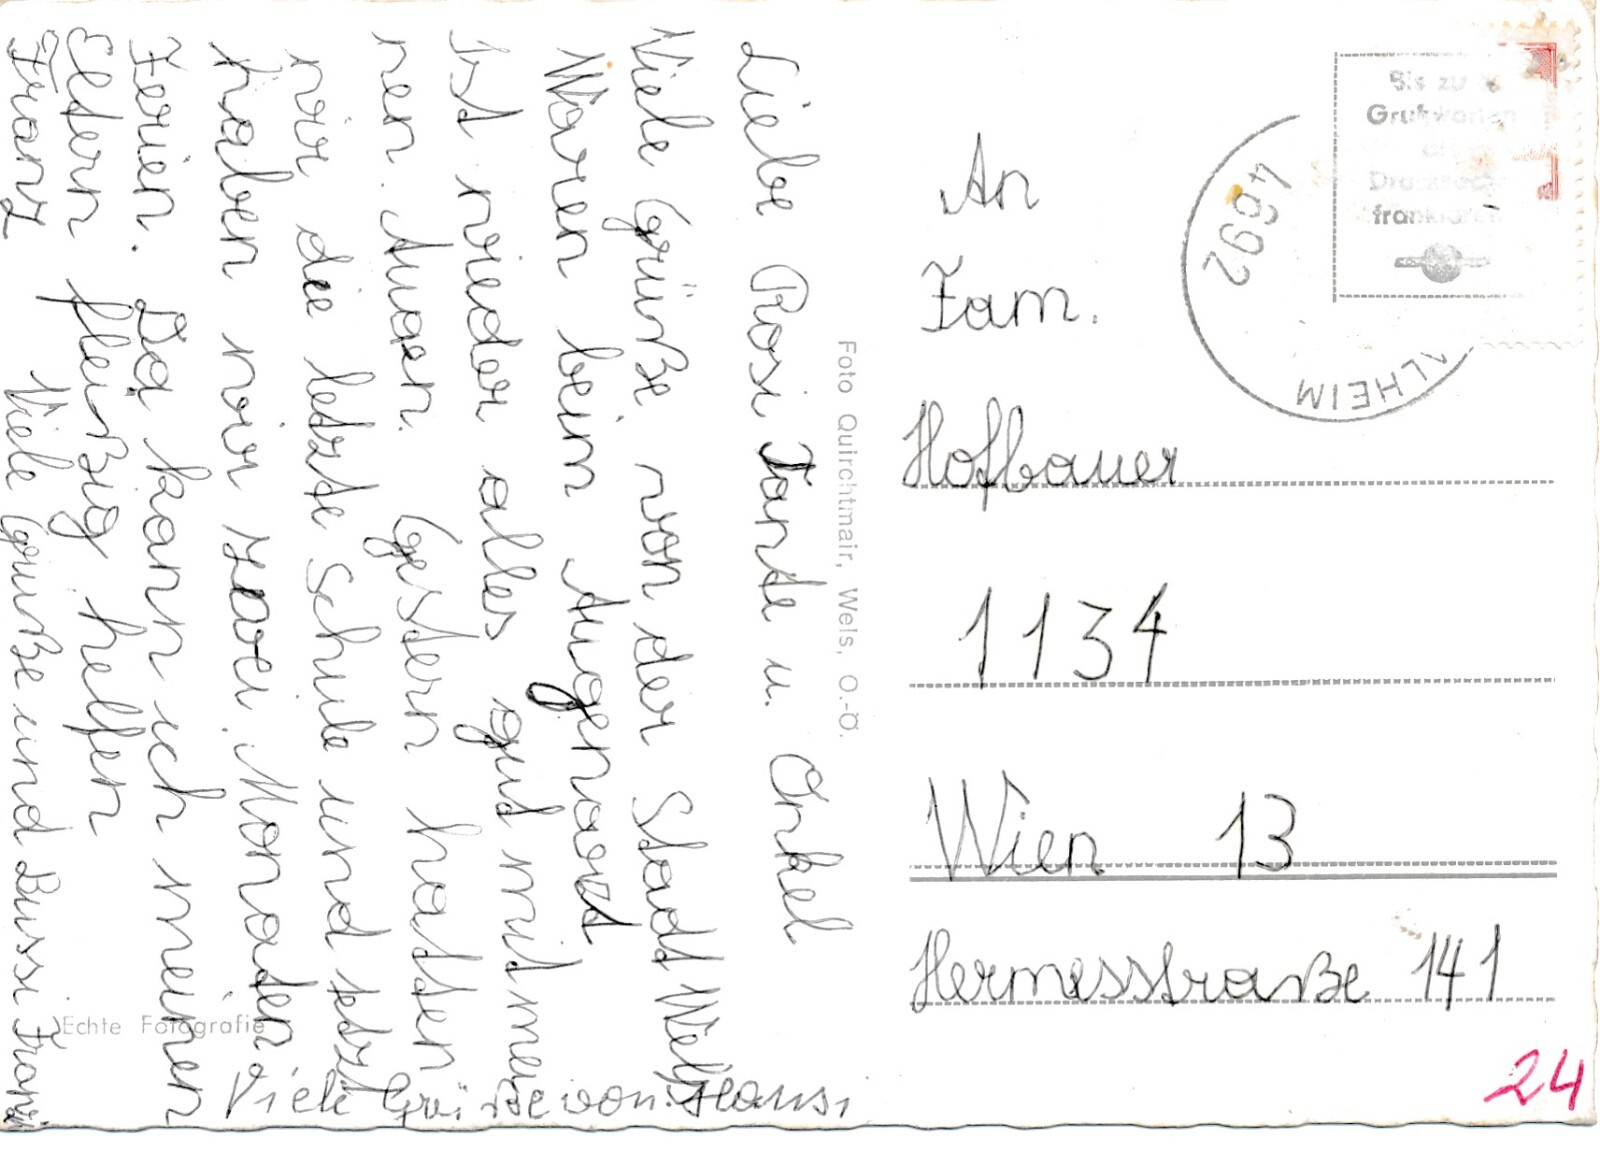 Liebe Rosi Tante u. Onkel
Viele Grüße von der Stadt Wels
Waren beim Augenarzt
Ist wieder alles gut mit mei
nen Augen. Gestern hatten
wir die letzte Schule und jetzt
haben wir zwei Monaten
Ferien. Da kann ich meinen
Eltern fleißig helfen
Franz Viele Grüße und Bussi Franzi
Viele Grüße von: Hansi
Foto Quirchtmair, Wels, O.-Ö.
Echte Fotografie
An
Fam.
Hofbauer
1134
Wien 13
Hermesstraße 141
24
4692
ALHEIM
Bis zu